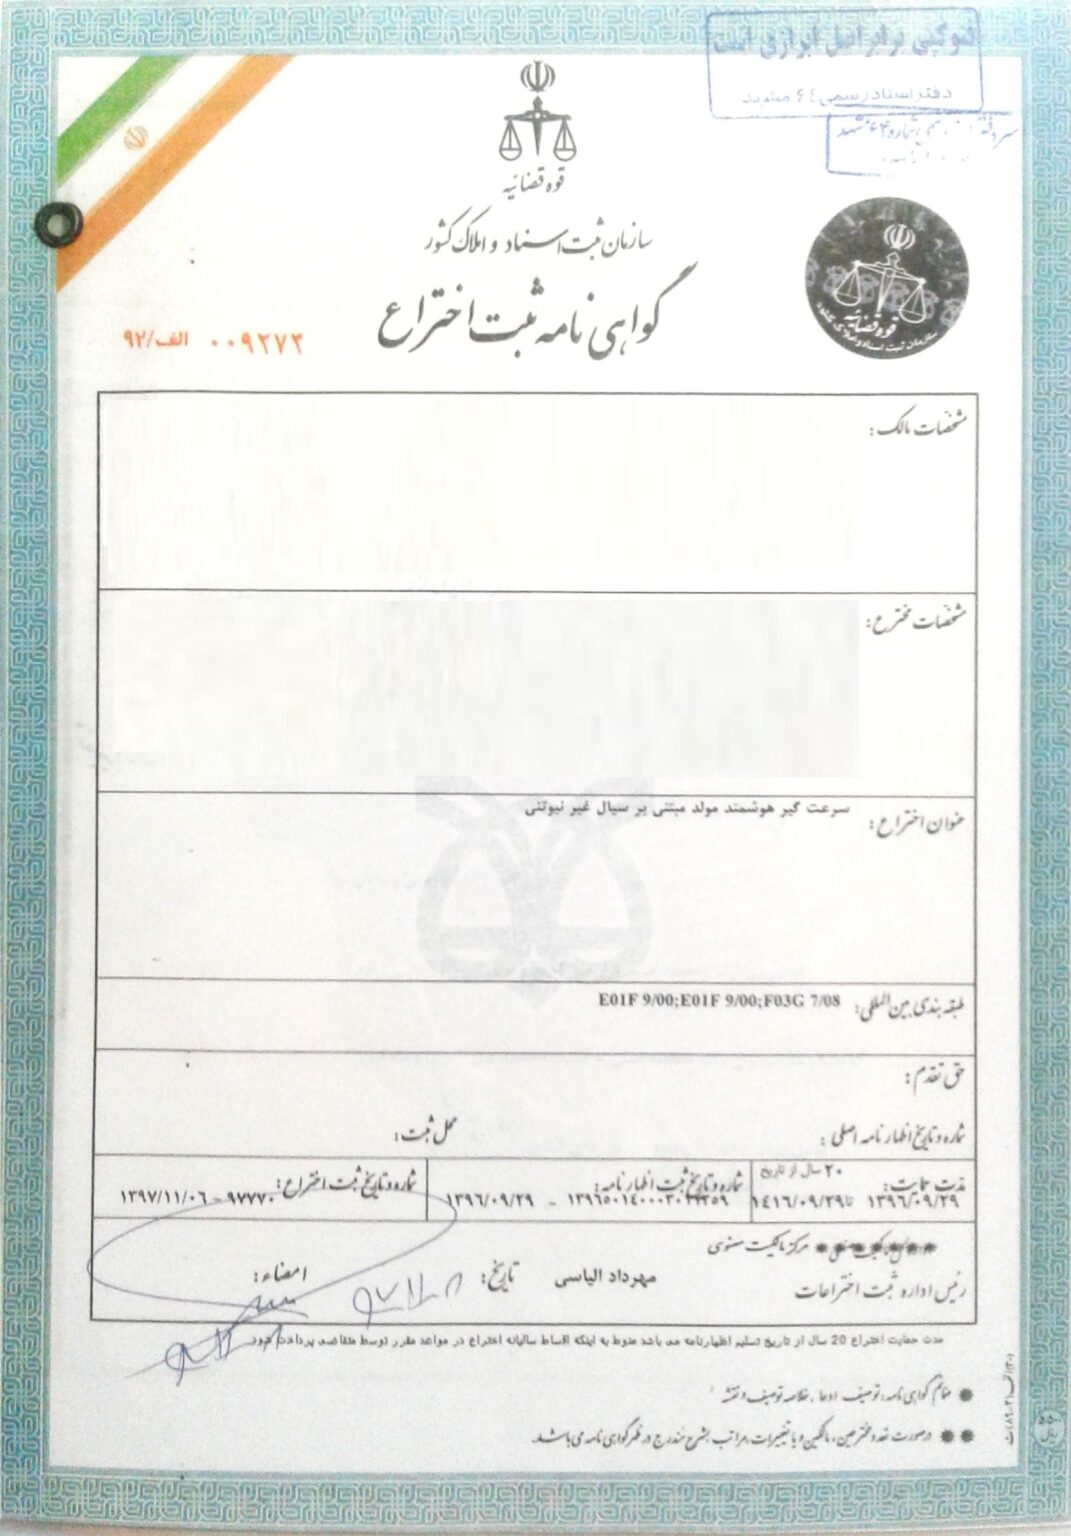 فتوکپی برابر اصل ابرازی است
دفتر اسناد رسمی ٦٤ مشهد
قوه قضائیه
سازمان ثبت اسناد و املاک کشور
گواهی نامه ثبت اختراع
۰۰۹۲۷۳ الف/۹۲
قوه قضائیه
سازمان ثبت اسناد و املاک کشور
مشخصات مالک:
مشخصات مخترع:
عنوان اختراع: سرعت گیر هوشمند مولد مبتنی بر سیال غیر نیوتنی
طبقه بندی بین المللی: E01F 9/00;E01F 9/00;F03G 7/08
حق تقدم:
شماره و تاریخ اظهارنامه اصلی: محل ثبت:
مدت حمایت: ۲۰ سال از تاریخ ۱۳۹۶/۰۹/۲۹ تا ۱۴۱۶/۰۹/۲۹
شماره و تاریخ ثبت اظهارنامه: ۱۳۹۶۵۰۱۴۰۰۰۳۰۲۲۳۵۹ - ۱۳۹۶/۰۹/۲۹
شماره و تاریخ ثبت اختراع: ۹۷۷۷۰ - ۱۳۹۷/۱۱/۰۶
مرکز مالکیت معنوی
رئیس اداره ثبت اختراعات مهرداد الیاسی تاریخ: امضاء:
مدت حمایت اختراع 20 سال از تاریخ تسلیم اظهارنامه می باشد منوط به اینکه اقساط سالیانه اختراع در مواعد مقرر توسط متقاضی پرداخت شود.
* ضمائم گواهی نامه: توصیف، ادعا، خلاصه توصیف و نقشه
** درصورت تعدد مخترعین، مالکین و یا تغییرات، مراتب بشرح مندرج در ظهر گواهی نامه می باشد.